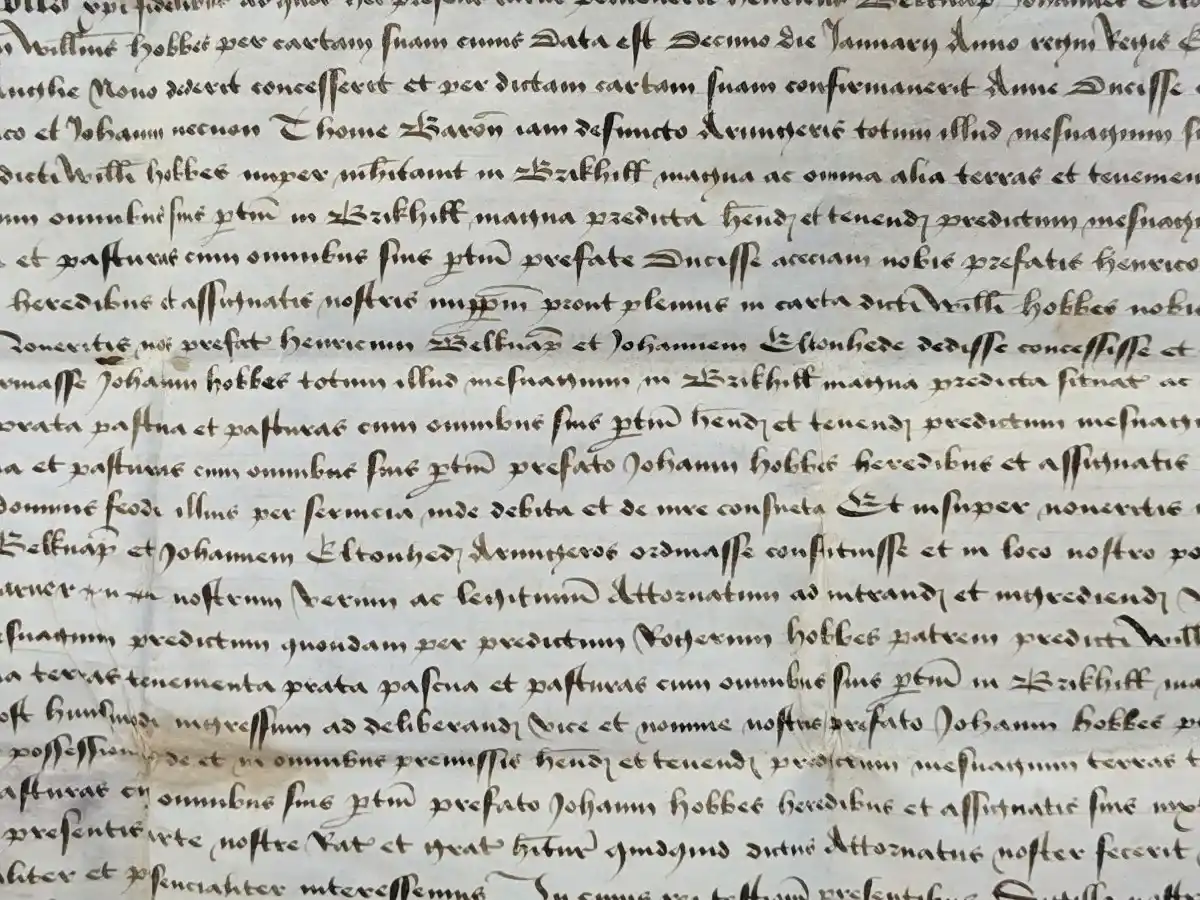 xpi fidelibus ad quos hoc presens scriptum pervenerit Henricus Belknap Johannes
Willms Hobbes per cartam suam cuius Data est Decimo die Januarij Anno regni Regis
Anglie Nono dederit concesserit et per dictam cartam suam confirmaverit Anne Ducisse
et Johanni necnon Thome Baron iam defuncto Armigeris totum illud mesuagium
dicti Willi Hobbes nuper inhitavit in Brikhill magna ac omnia alia terras et tenemen
omnibus suis ptin in Brikhill magna predicta hend et tenend predictum mesuagi
et pasturas cum omnibus suis ptin prefate Ducisse aceciam nobis prefatis Henrico
heredibus et assignatis nostris imppm prout plenius in carta dicti Willi Hobbes nobis
Noveritis nos prefat Henricum Belknap et Johannem Eltonhede dedisse concessisse et
rmasse Johanni Hobbes totum illud mesuagium in Brikhill magna predicta situat ac
prata pastua et pasturas cum omnibus suis ptin hend et tenend predictum mesuagi
et pasturas cum omnibus suis ptin prefato Johanni Hobbes heredibus et assignatis
feodi illius per servicia inde debita et de iure consueta Et insuper noveritis
Belknap et Johannem Eltonhed Armigeros ordinasse constituisse et in loco nostro po
nostrum verum ac legitimum Attornatum ad intrand et ingrediend
suagium predictum quondam per predictum Rogerum Hobbes patrem predicti Will
terras tenementa prata pascua et pasturas cum omnibus suis ptin in Brikhill ma
post huiusmodi ingressum ad deliberand vice et nomine nostris prefato Johanni Hobbes
possession de et in omnibus premissis hend et tenend predictum mesuagium terras
asturas cu omnibus suis ptin prefato Johanni Hobbes heredibus et assignatis suis
presentis arte nostre Rat et grat hitur quidquid dictus Attornatus noster fecerit
aliter et psencialiter interessemus In cuius rei testiom presentibus Sigilla nostra